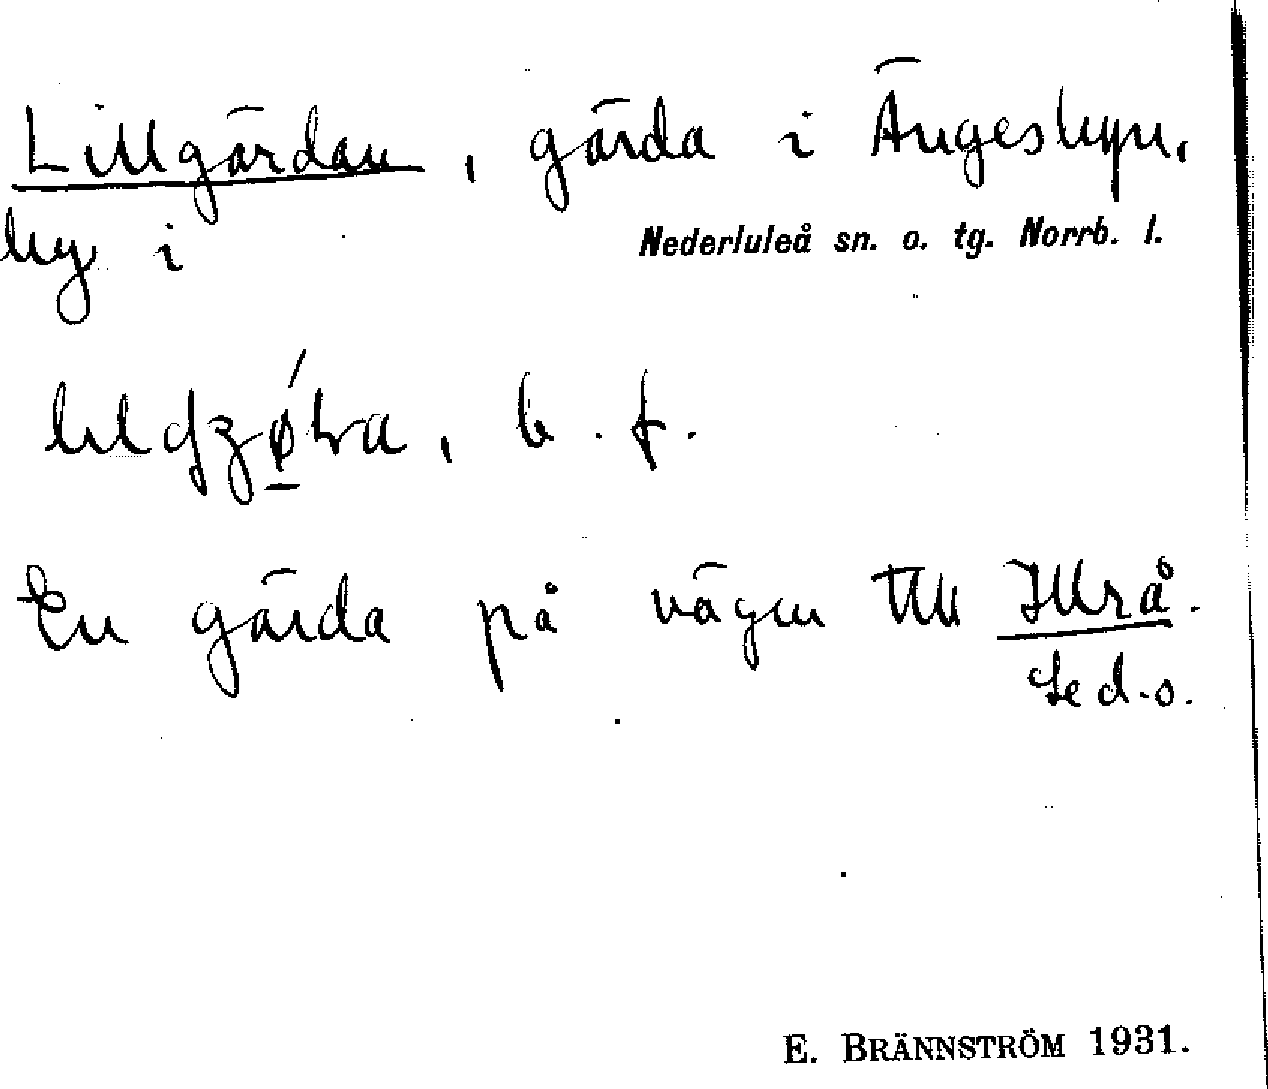 Lillgärdan, gärda i Ängesbyn,
by i Nederluleå sn. o. tg. Norrb. l.
b. f.
En gärda på vägen till Illrå.
Se d.o.
E. BRÄNNSTRÖM 1931.